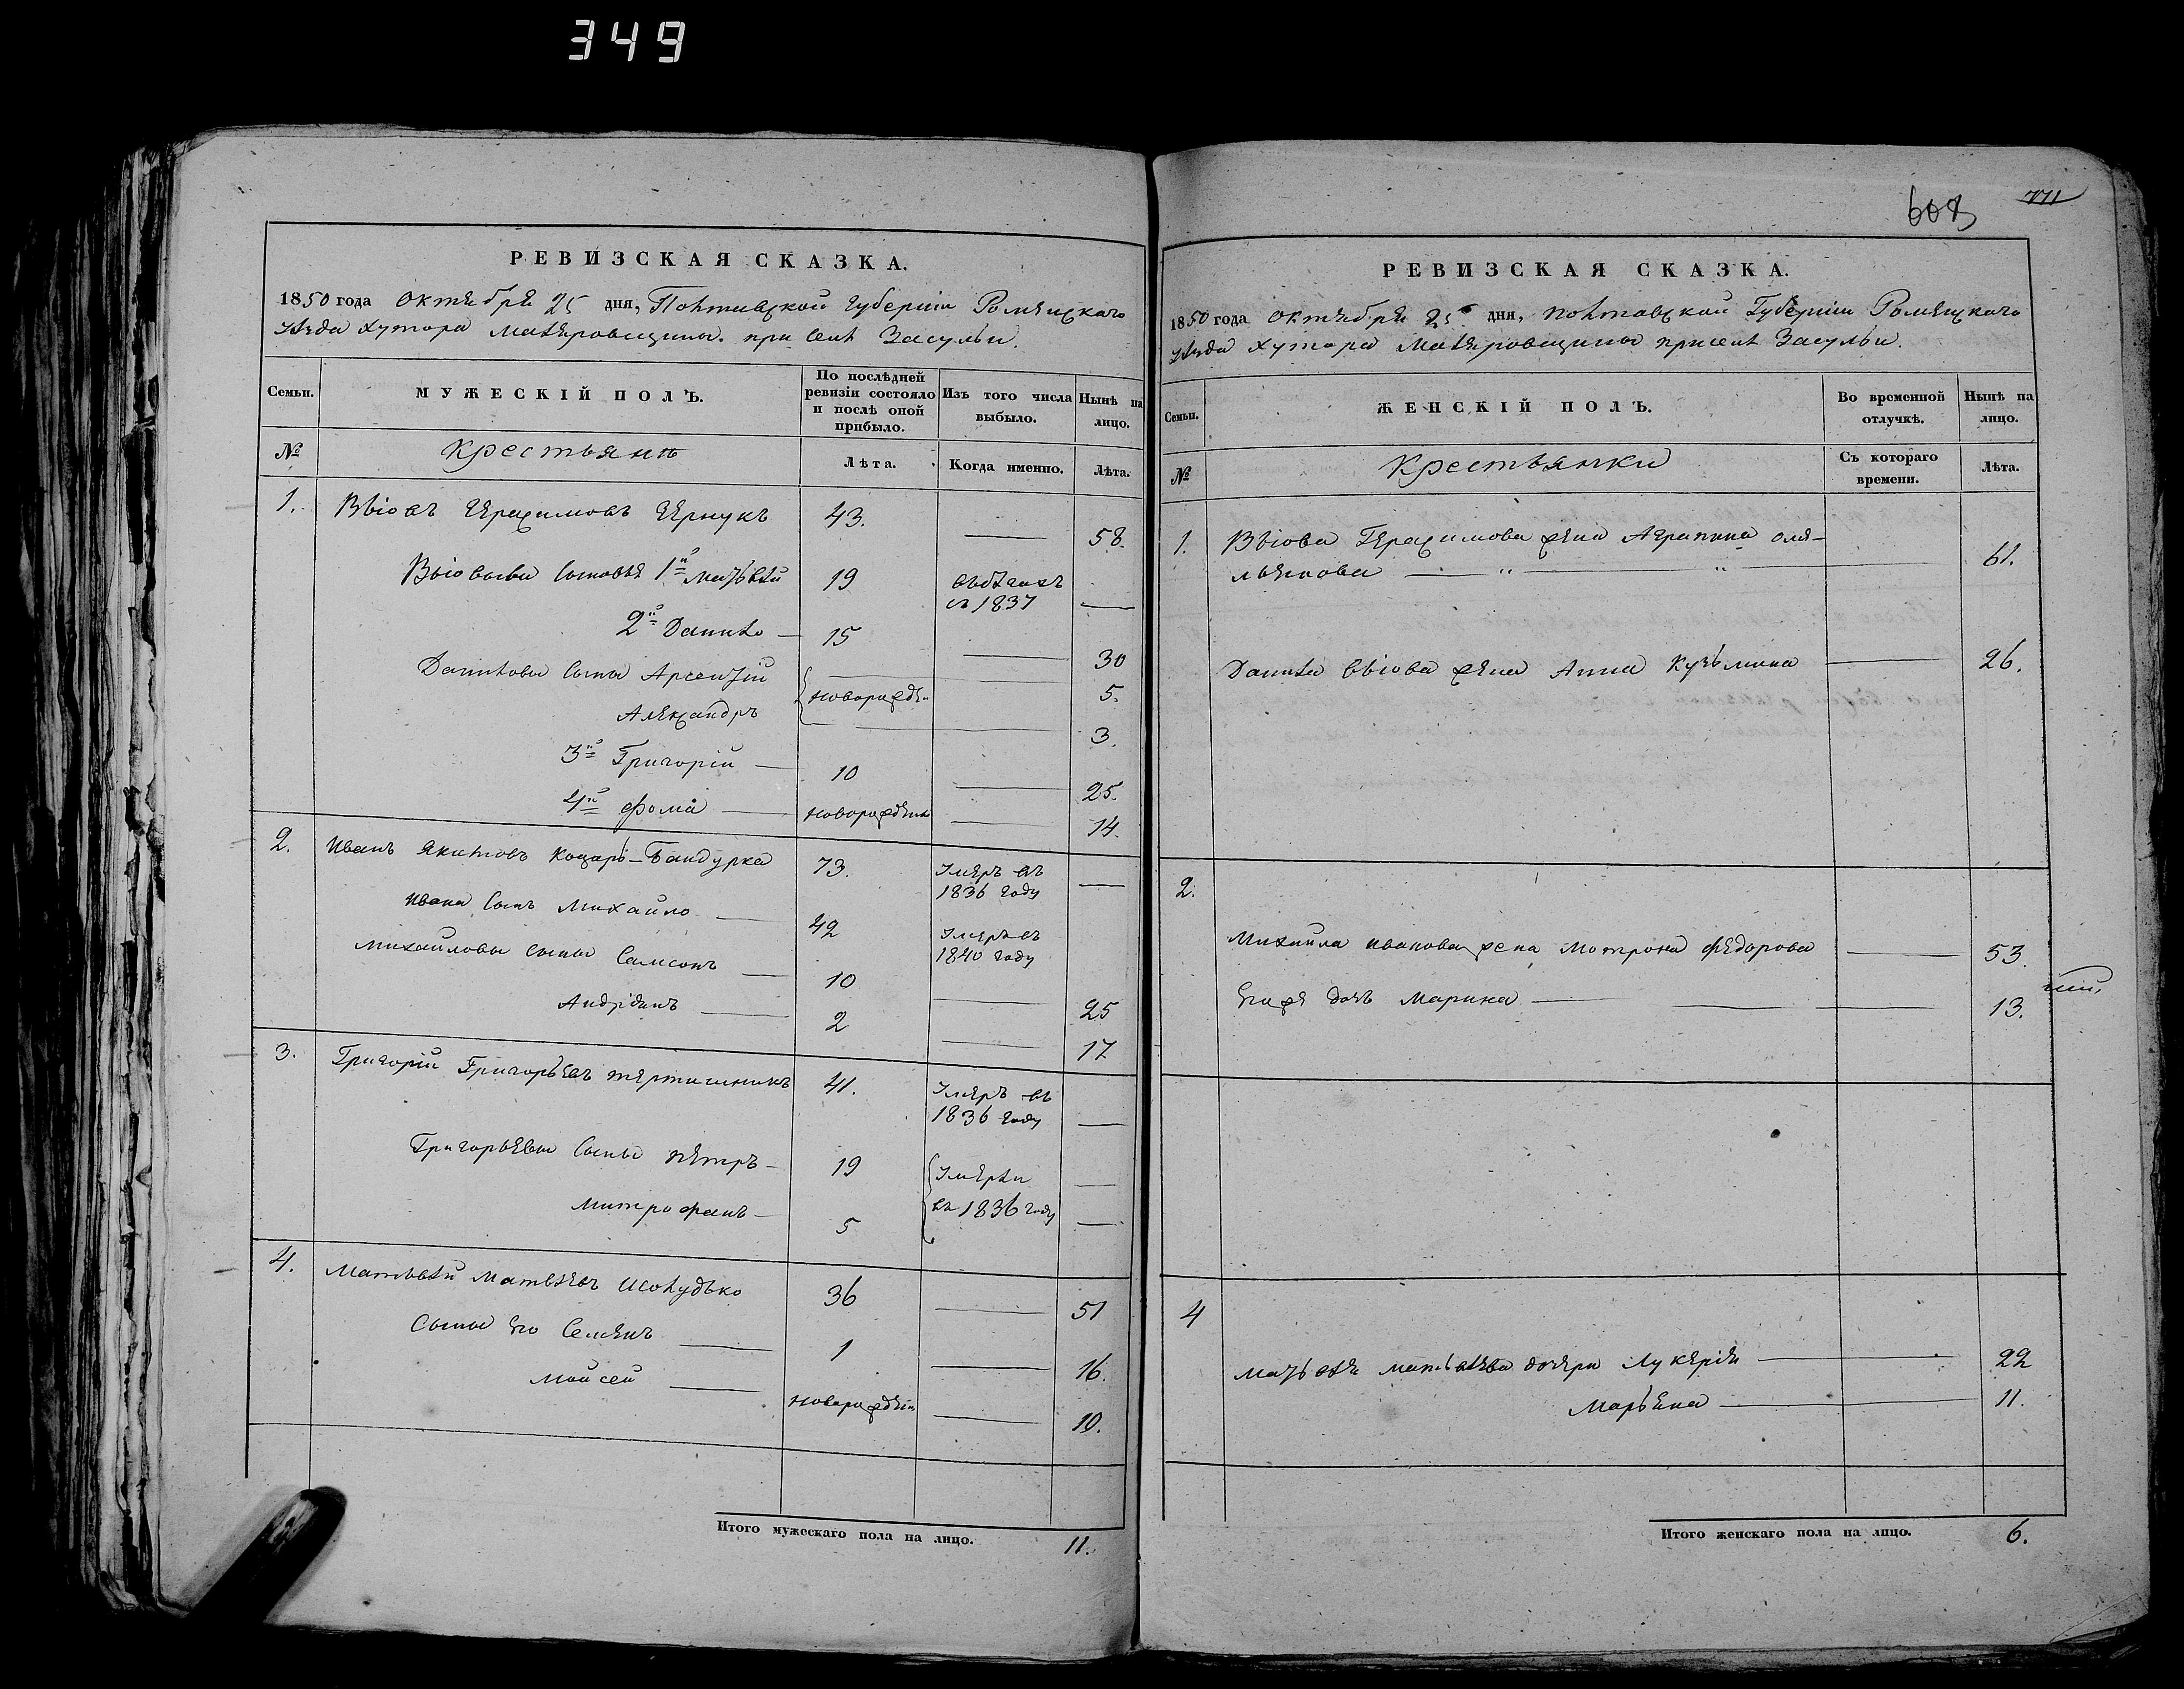 349
608
711
РЕВИЗСКАЯ СКАЗКА.
1850 года Октября 25 дня, Полтавской губерніи Роменскаго
уѣзда хутора Маѣровщины при селѣ Засульи.
Семьи.
МУЖЕСКІЙ ПОЛЪ.
По послѣдней ревизіи состояло и послѣ оной прибыло.
Изъ того числа выбыло.
Нынѣ на лицо.
№
Крестьяне
Лѣта.
Когда именно.
Лѣта.
1. Герасимовъ 43. — 58.
сыновья 1й Матвѣй 19 въ 1837 —
2й Данило — 15 — 30
Даниловы сыны Арсентій — 5.
{ новорожден
Александръ — 3.
3й Григорій — 10 — 25.
4й Фома — новорожден — 14.
2. Иванъ Якимовъ Коцарь-Бандурка 73. Умеръ въ —
1836 году
Ивана сынъ Михайло — 42 Умеръ въ
1840 году
Михайловы сыны Самсонъ — 10 — 25
Андріанъ — 2 — 17
3. Григорій Григорьевъ 41. Умеръ въ
1836 году —
Григорьевы сыны Петръ — 19 { Умерли —
Митрофанъ — 5 въ 1836 году —
4. Матвѣй Матвѣевъ Шолудько 36 — 51
Сыны его Семенъ — 1 — 16.
Мойсей — новорожден — 10.
Итого мужескаго пола на лицо. 11.
РЕВИЗСКАЯ СКАЗКА.
1850 года Октября 25 дня, Полтавской Губерніи Роменскаго
уѣзда хутора Маѣровщины при селѣ Засульи.
Семьи.
ЖЕНСКІЙ ПОЛЪ.
Во временной отлучкѣ.
Нынѣ на лицо.
№
Крестьянки
Съ котораго времени.
Лѣта.
1. Герасимова жена Аграпина Оме-
льянова — " — " — 61.
Данила жена Анна Кузьмина — 26.
2.
Михайла Иванова жена Мотрона Федорова — 53.
Его же дочь Марина — 13.
4
Матвѣя Матвѣева дочери Лукерія — 22
Марьяна — 11.
Итого женскаго пола на лицо. 6.